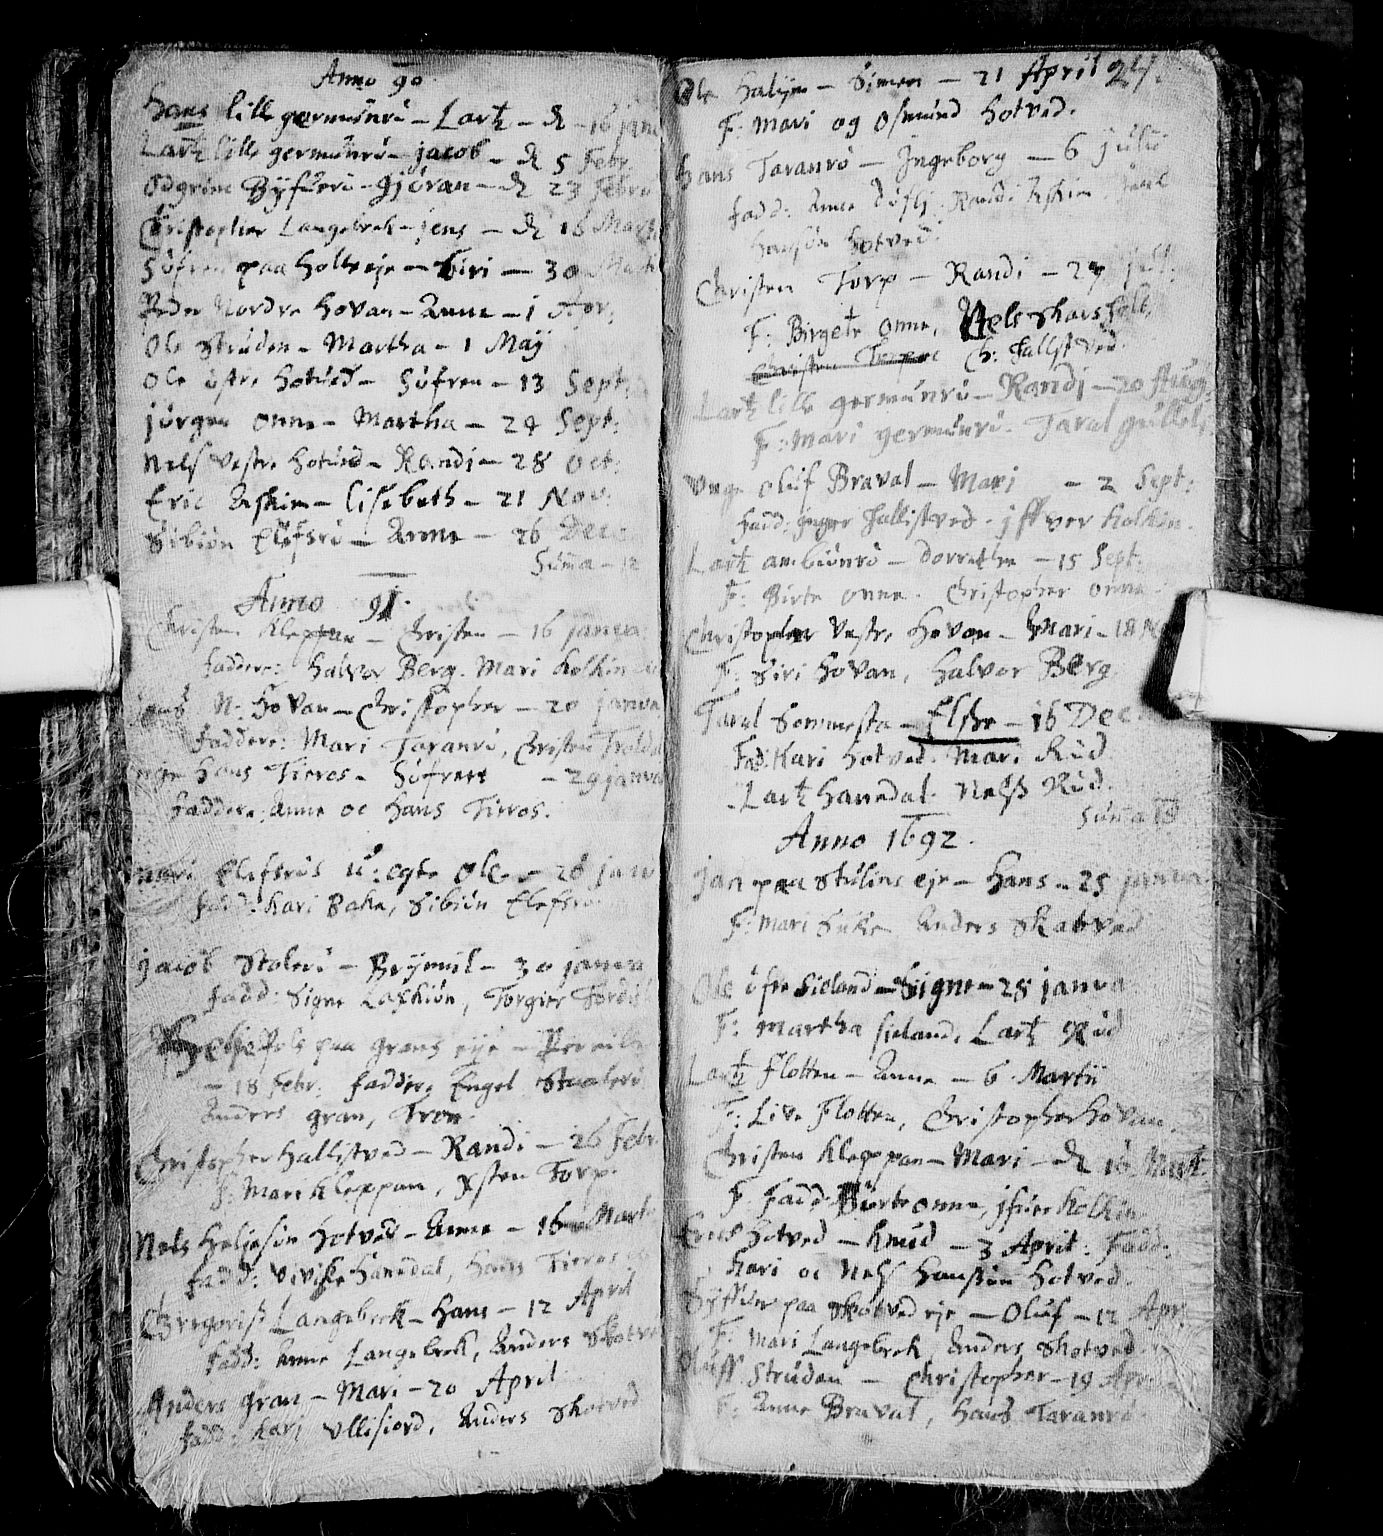 Anno 90
Hans lille germünrü – Lartz – d 16 janu
Lartz lille germünrü – jacob – d 5 Febr.
Odgrim – Gjöran – d 23 Febru
Christopher Langebrek – jens – d 16 Mart
Söfren paa Holts eje – Siri – 30 Mart
Peder Nordre Hovan – Anne – 1 Apr:
Ole Strüden – Martha – 1 Maÿ
Ole östre hotved – Söfren – 13 Sept:
jörgen onne – Martha – 24 Sept:
Nels vestre hotved – Randi – 28 Oct:
Eric Askim – Lisebeth – 21 Nov:
Sibiön Elefsrü – Anne – 26 Dec:
Süma – 12
Anno 91.
Christen Kleppan – Christen – 16 janua:
Faddere: Halvor Berg. Mari Kolkin
N: Hovan – Christopher – 20 janua
Faddere: Mari Taranrü, Christen
Hans Tieros – Söfren – 29 janua
Faddere: Anne oc Hans Tieros.
Mari Elefsrüs ü: egte Ole – 26 janu
Fadd: Kari Baka, Sibiön Elefsrü
jacob Stolerü – Brÿnnil – 30 janua
Fadd: Signe Laskiön, Torgier
paa Grans eje –
– 18 Febr: Faddere Engel Stoolerü
Anders gran, Tron.
Christopher Hallistved – Randi – 26 Febr.
F: Mari Kleppan, Torp.
Nels Heljesön Hotved – Anne – 16 Mart
Fadd: Hanedal, Hans Tieros
Gregoriss Langebrek – Hans – 12 April
Fadd: Anne Langebrek, Anders Skotved
Anders gran – Mari – 20 April
Fadd: Kari Ullisiord, Anders Skotved
24.
Ole – Simen – 21 April
F: Mari og Osmünd Hotved.
Hans Taranrü – Ingeborg – 6 julii
Fadd: Anne Randi Askim
Hansön Hotved.
Christen Torp – Randi – 27 jul:
F: Birgete Onne, Nels
Ch: Hallistved.
Lartz lille germünrü – Randi – 20 Aug:
F: Mari germünrü. Taral
Unge Olüf Braval – Mari – 2 Sept:
Fadd: Inger Hallistved. jffver Kolkin.
Lartz ambiünrü – Dorrethe – 15 Sept:
F: Birte onne. Christopher onne.
Christopher Vestre Hovan – Mari – 18
F: Siri Hovan, Halvor Berg
Taral Sommesta – Elsse – 16 Dec
Fad: Kari Hotved. Mari Rüd
Lartz Hanedal. Nelss Rüd.
Süma 18
Anno 1692.
Jan paa Stülins eje – Hans – 25 janua:
F: Mari Anders Skotved
Ole öfre Sieland – Signe – 28 janua
F: Martha Sieland, Lartz Rüd
Lartz Flotten – Anne – 6 Martii
F: Live Flotten, Christopher Hovan.
Christen Kleppan – Mari – d 16 Mart:
F: Fadd: Börte onne, jfver Kolkin
Erick Hotved – Knüd – 3 April: Fadd:
Kari oc Nels Hanssön Hotved.
Syffver paa Skotved eje – Olüf – 12 Apr:
F: Mari Langebrek, Anders Skotved.
Olüff Strüden – Christopher – 19 Apr
F: Anne Braval, Hans Taranrü